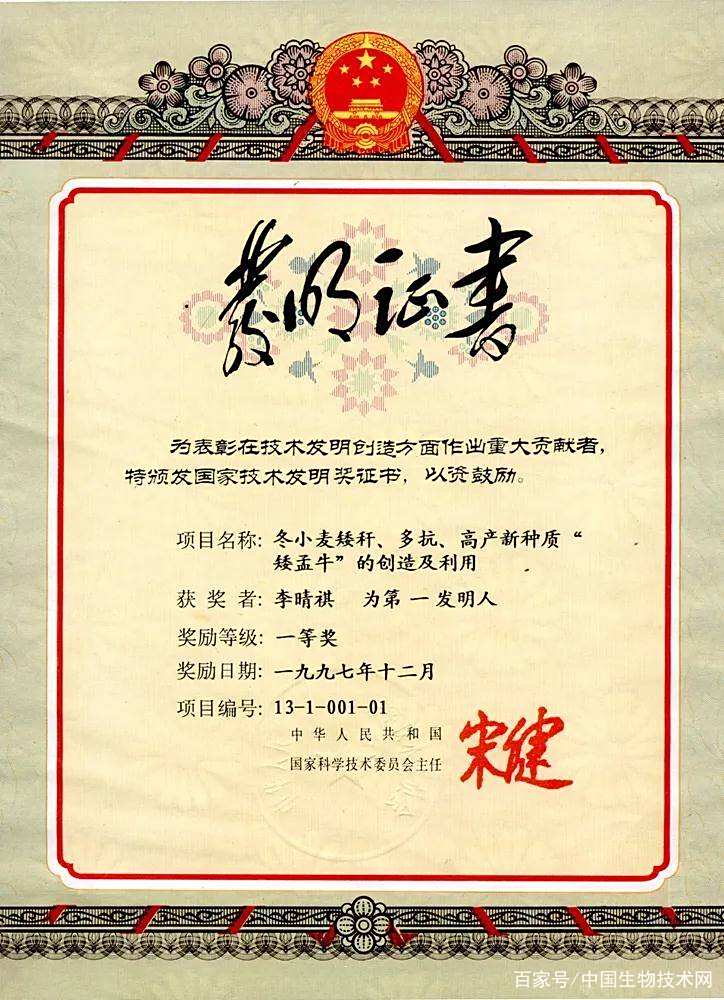 发明证书
为表彰在技术发明创造方面作出重大贡献者，
特颁发国家技术发明奖证书，以资鼓励。
项目名称：冬小麦矮秆、多抗、高产新种质“
矮孟牛”的创造及利用
获奖者：李晴祺 为第一发明人
奖励等级：一等奖
奖励日期：一九九七年十二月
项目编号：13-1-001-01
中华人民共和国
国家科学技术委员会主任
宋健
百家号/中国生物技术网